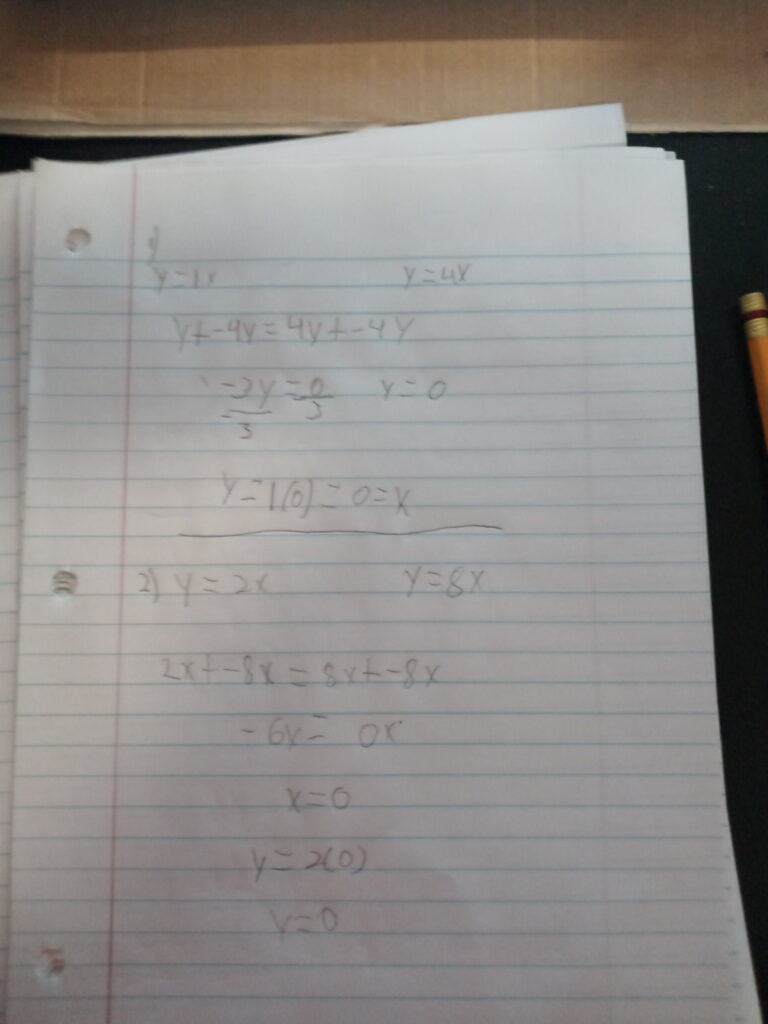 1)
y=1x y=4x
y+-4y=4y+-4y
-3y=0 y=0
-3 3
y=1(0)=0=x
2) y=2x y=8x
2x+-8x=8x+-8x
-6x= 0x
x=0
y=2(0)
y=0